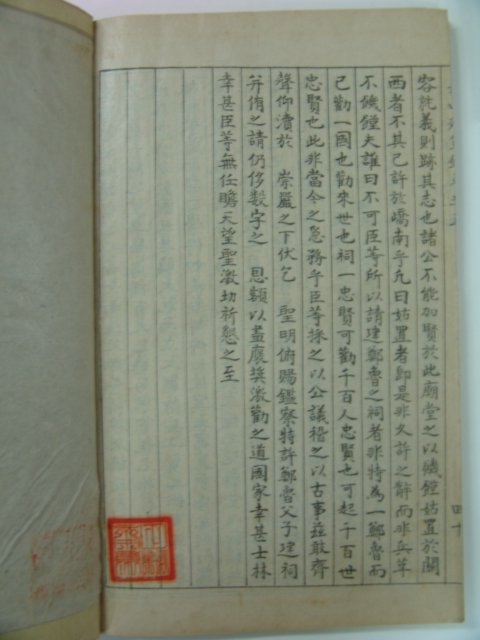 容就義則跡其志也諸公不能加賢於此廟堂之以
西者不其已許於嶠南乎凡曰姑置者卽是非久許之辭而非
不
夫誰曰不可臣等所以請建鄭魯之祠者非特為一鄭魯而
已勸一國也勸來世也祠一忠賢可勸千百人忠賢也可起千百世
忠賢也此非當今之急務乎臣等採之以公議稽之以古事玆敢齊
聲仰瀆於 崇嚴之下伏乞 聖明俯賜鑑察特許鄭魯父子建祠
幷侑之請仍侈數字之 恩額以盡褒奬激勸之道國家幸甚士林
幸甚臣等無任瞻天望聖激切祈懇之至
四十